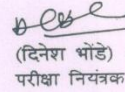 (दिनेश भोंडे)
परीक्षा नियंत्रक